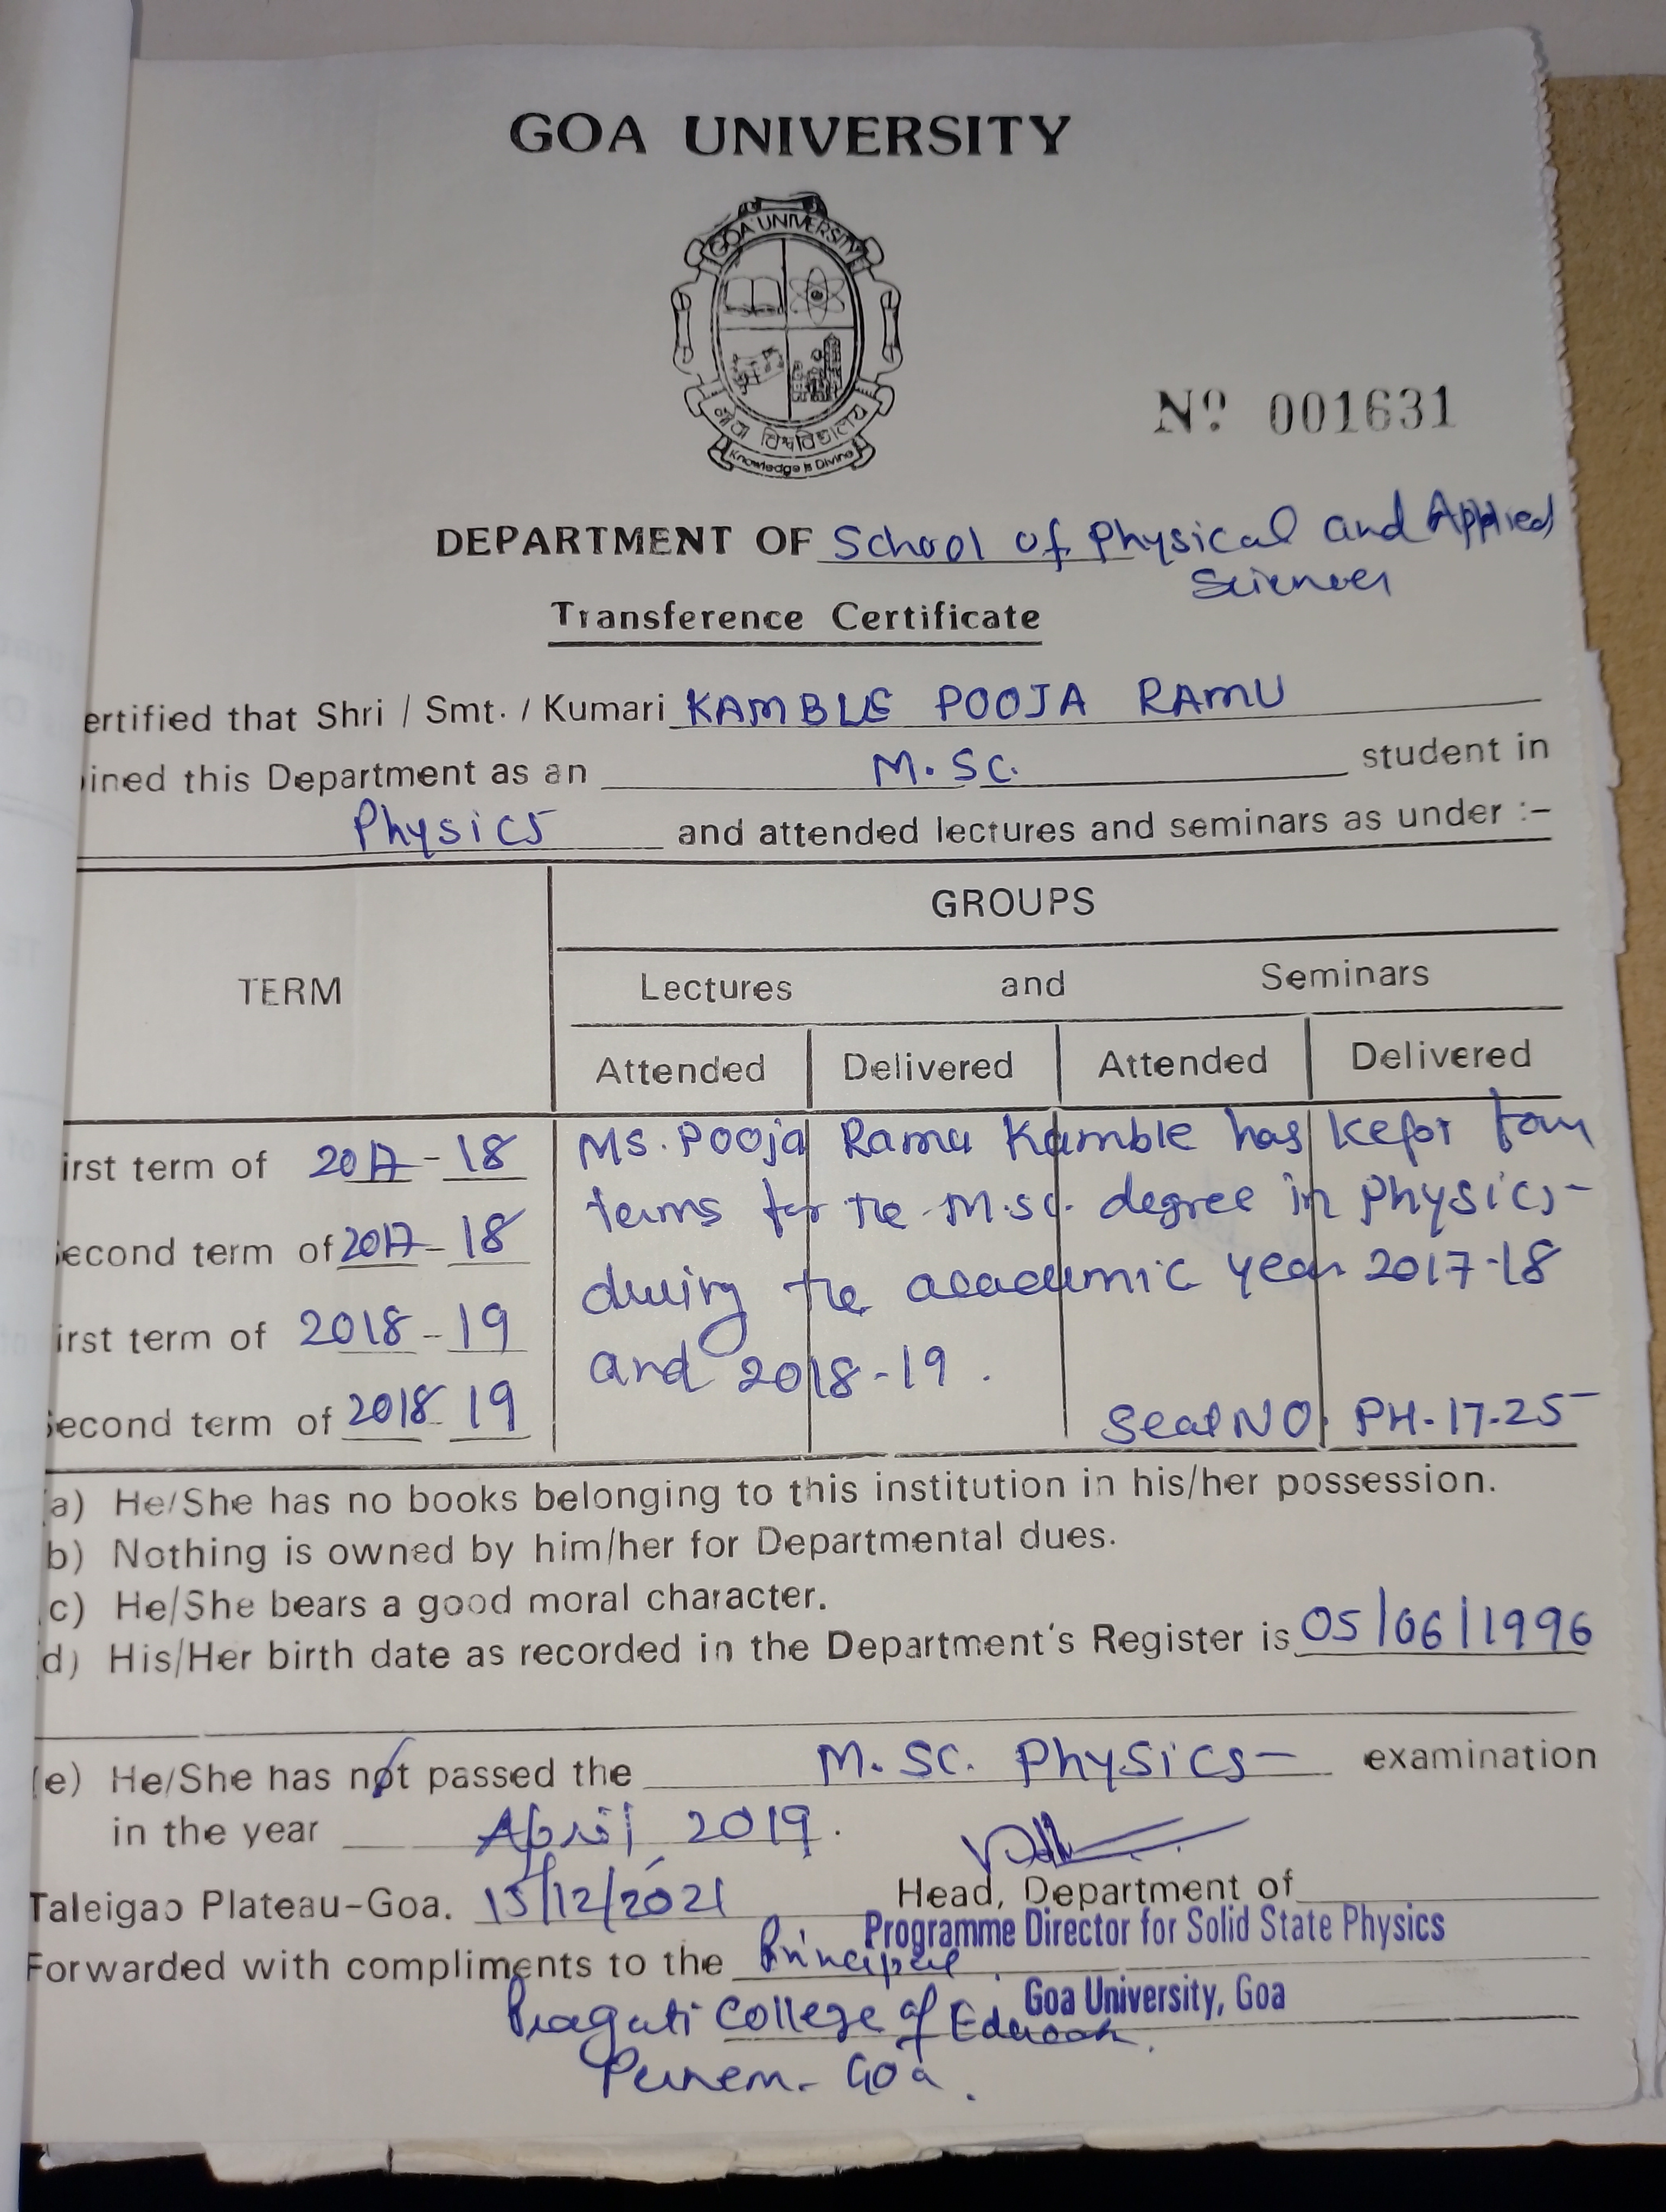 GOA UNIVERSITY
GOA UNIVERSITY
गोवा विश्वविद्यालय
Knowledge is Divine
Nº 001631
DEPARTMENT OF School of Physical and Applied
Sciences
Transference Certificate
ertified that Shri / Smt. / Kumari KAMBLE POOJA RAMU
ined this Department as an M.Sc. student in
Physics and attended lectures and seminars as under :-
GROUPS
TERM Lectures and Seminars
Attended Delivered Attended Delivered
irst term of 2017-18 Ms. Pooja Ramu Kamble has kept four
econd term of 2017-18 terms for the M.Sc. degree in Physics-
during the academic year 2017-18
irst term of 2018-19 and 2018-19.
econd term of 2018-19 Seat NO. PH-17-25
a) He/She has no books belonging to this institution in his/her possession.
b) Nothing is owned by him/her for Departmental dues.
c) He/She bears a good moral character.
d) His/Her birth date as recorded in the Department's Register is 05/06/1996
(e) He/She has not passed the M.Sc. Physics- examination
in the year April 2019.
Taleigao Plateau-Goa. 15/12/2021 Head, Department of
Programme Director for Solid State Physics
Forwarded with compliments to the Principal
Goa University, Goa
Pragati College of
Goa.